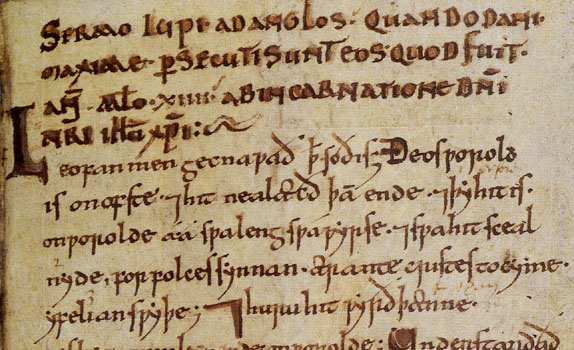 SERMO LUPI AD ANGLOS· QUANDO DANI·
MAXIME PSECUTI SUNT EOS· QUOD FUIT·
AN̄· MĪLLO·XIIII· AB INCARNATIONE DN̄I
NR̄I IH̄U XP̄I:
Leofan men gecnaƿað ꝥ soð is; Ðeos ƿorold
is on ofste· ⁊hit nealæcð þā ende· ⁊þy hit is·
on ƿorolde aa sƿa leng sƿa ƿyrse· ⁊sƿa hit sceal
nyde, for folces synnan· ær antecristes tocyme·
yfelian sƿyþe; ⁊huru hit ƿyrð þænne
on ƿorolde· Understandað